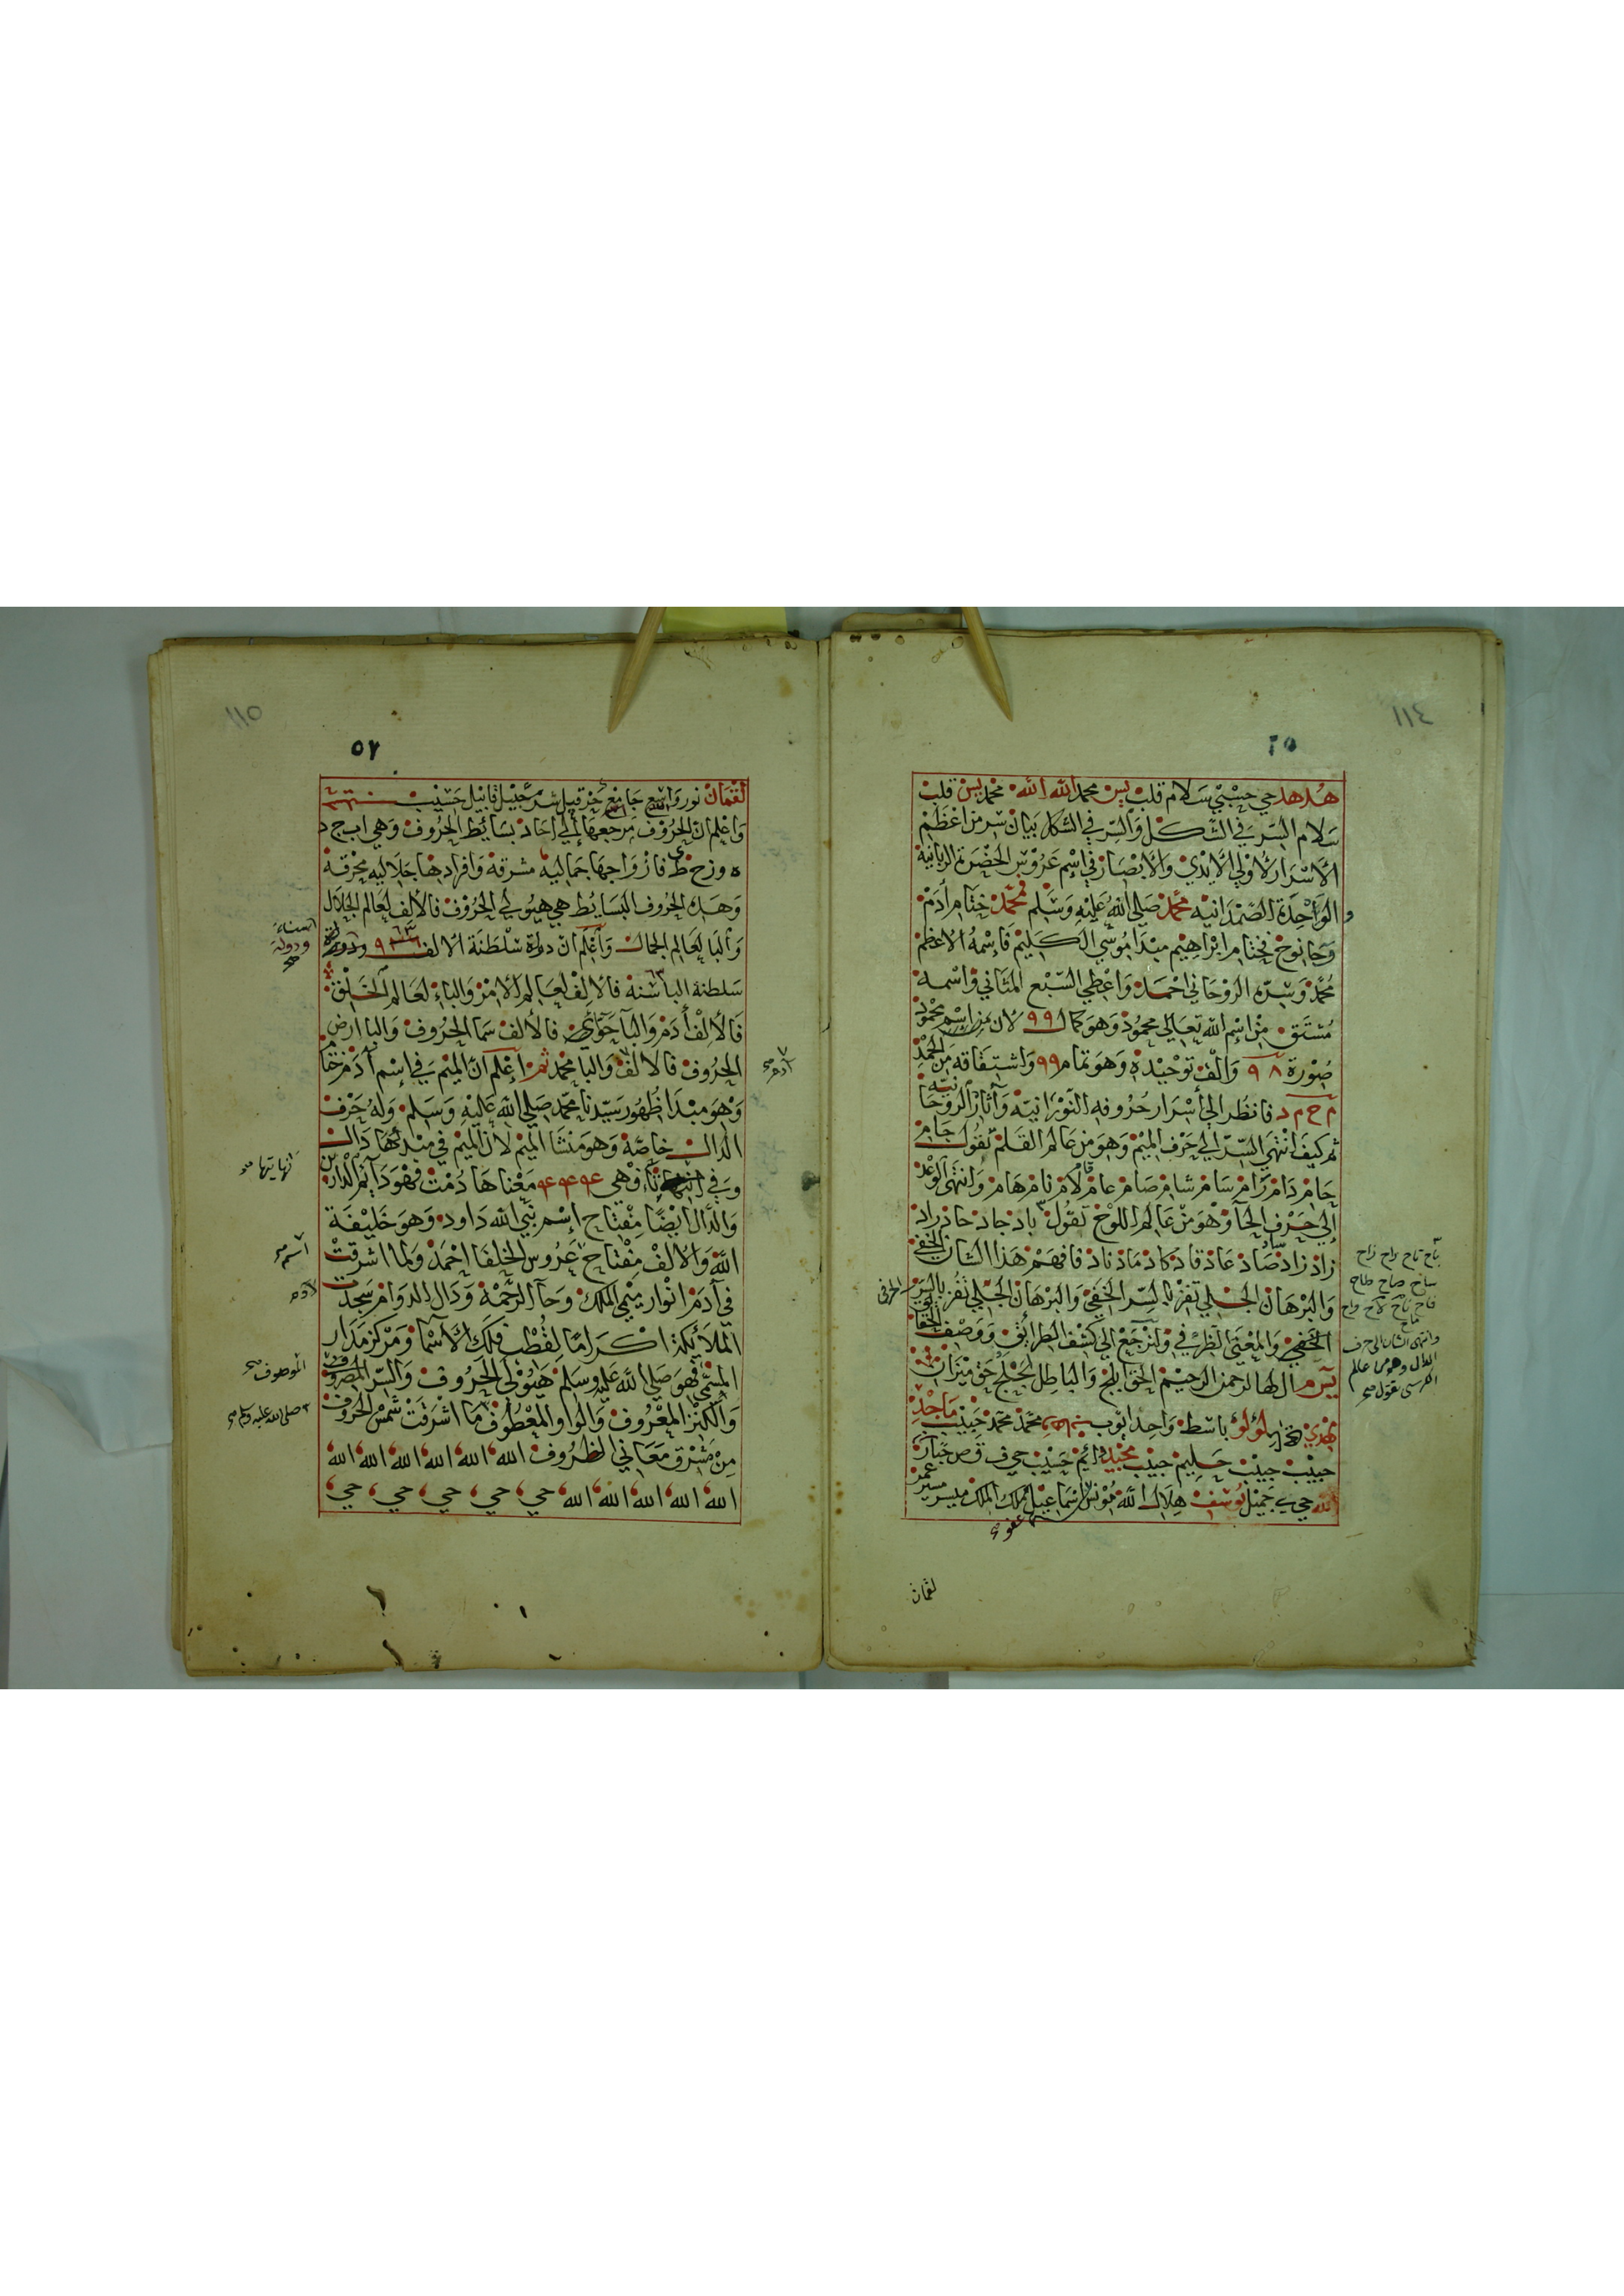 ١١٤
٥٦
هدهد حي حسيبي سلام قلب يس محمد الله الله محمد يس قلب
سلام السر في الشكل والسر في الشكل بيان سر من اعظم
الاسرار لاولي الايدي والابصار في اسم عروس الحضرة الربانية
الواحدة الصمدانيه محمد صلي الله عليه وسلم فمحمد ختام أدم
وحا نوح فختام ابراهيم مبدا موسي الكليم فاسمه الاعظم
محمد وسره الروحاني احمد واعطي السبع المثاني واسمه
مشتق من اسم الله تعالي محمود وهو كمال ٩٩ لان من اسم محمود
صورة ٩٨ والف توحيده وهو تمام ٩٩ واشتقاقه من الحمد
م ح م د فانظر الي أسرار حروفه النورانية وآثار الروحانيه
ثم كيف انتهي السر الي حرف الميم وهو من عالم القلم تقول جام
حام دام رام سام شام صام عام قام لام نام هام وانتهي الوعد
إلي حرف الحآ وهو من عالم اللوح تقول باد جاد حاد راد
زاد زاد صاد عاد قاد كاد ماد ناد فافهم هذا الشان الخفي
والبرهان الجلي تفز بالسر الخفي والبرهان الجلي تفز بالسر الحرفي
الخفي والمعني الظرفي ولنرجع الي كشف الطرايق ووصف الحقايق
يس م الها لرحمن الرحيم الحق ابلج والباطل لجلج حق ميزان
مهدي لؤلؤ باسط واحد ايوب محمد محمد حبيب ماجد
حبيب حبيب حليم حبيب مجيد دايم حسيب حي ف ق ص جبار
الله حي جميل يوسف هلال الله يونس اسماعيل ملك الملك ميسر
باح تاح راح زاح
ساح صاح طاح
فاح ناح لاح واح
وانتهي الشان الي حرف
الدال وهو من عالم
الكرسي تقول صح
لقمان
١١٥
٥٧
لقمان نور واسع جامع حزقيل شرجيل قابيل حسيب
واعلم ان الحروف مرجعها إلي احاد بسايط الحروف وهي اب ج د
ه و ز ح ط ي فازواجها جماليه مشرقة وافرادها جلاليه محرقة
وهذه الحروف البسايط هي هيولي الحروف فالألف لعالم الجلال
والبا لعالم الجمال واعلم ان دولة سلطنة الالف
سلطنة البا سنة فالالف لعالم الامر والباء لعالم الخلق
فالألف أدم والبآ حوآء فالألف سما الحروف والبا ارض
الحروف فالالف والبا محمد ثم اعلم ان الميم في إسم آدم حقا
وهو مبدا ظهور سيدنا محمد صلي الله عليه وسلم وله حرف
الدال خاصة وهو منشا الميم لان الميم في مبدئها دال
وفي وهي معناها دمت فهو دايم الدارين
والدال ايضا مفتاح إسم نبي الله داود وهو خليفة
الله والالف مفتاح عروس الخلفا احمد ولما اشرقت
في آدم انوار ميمي الملك وحآ الرحمة ودال الدوام سجدت
الملائكة اكراما لقطب فلك الأسما ومركز مدار
المسمي فهو صلي الله عليه وسلم هيولي الحروف والسر المصروف
والكنز المعروف والواو المعطوف ما اشرقت شمس الحروف
من مشرق معاني الظروف الله الله الله الله الله الله
الله الله الله الله الله حي حي حي حي حي
السناء
ودولة
آدم صح
نهايتها صح
اسم صح
الموصوف صح
صلي الله عليه وسلم صح